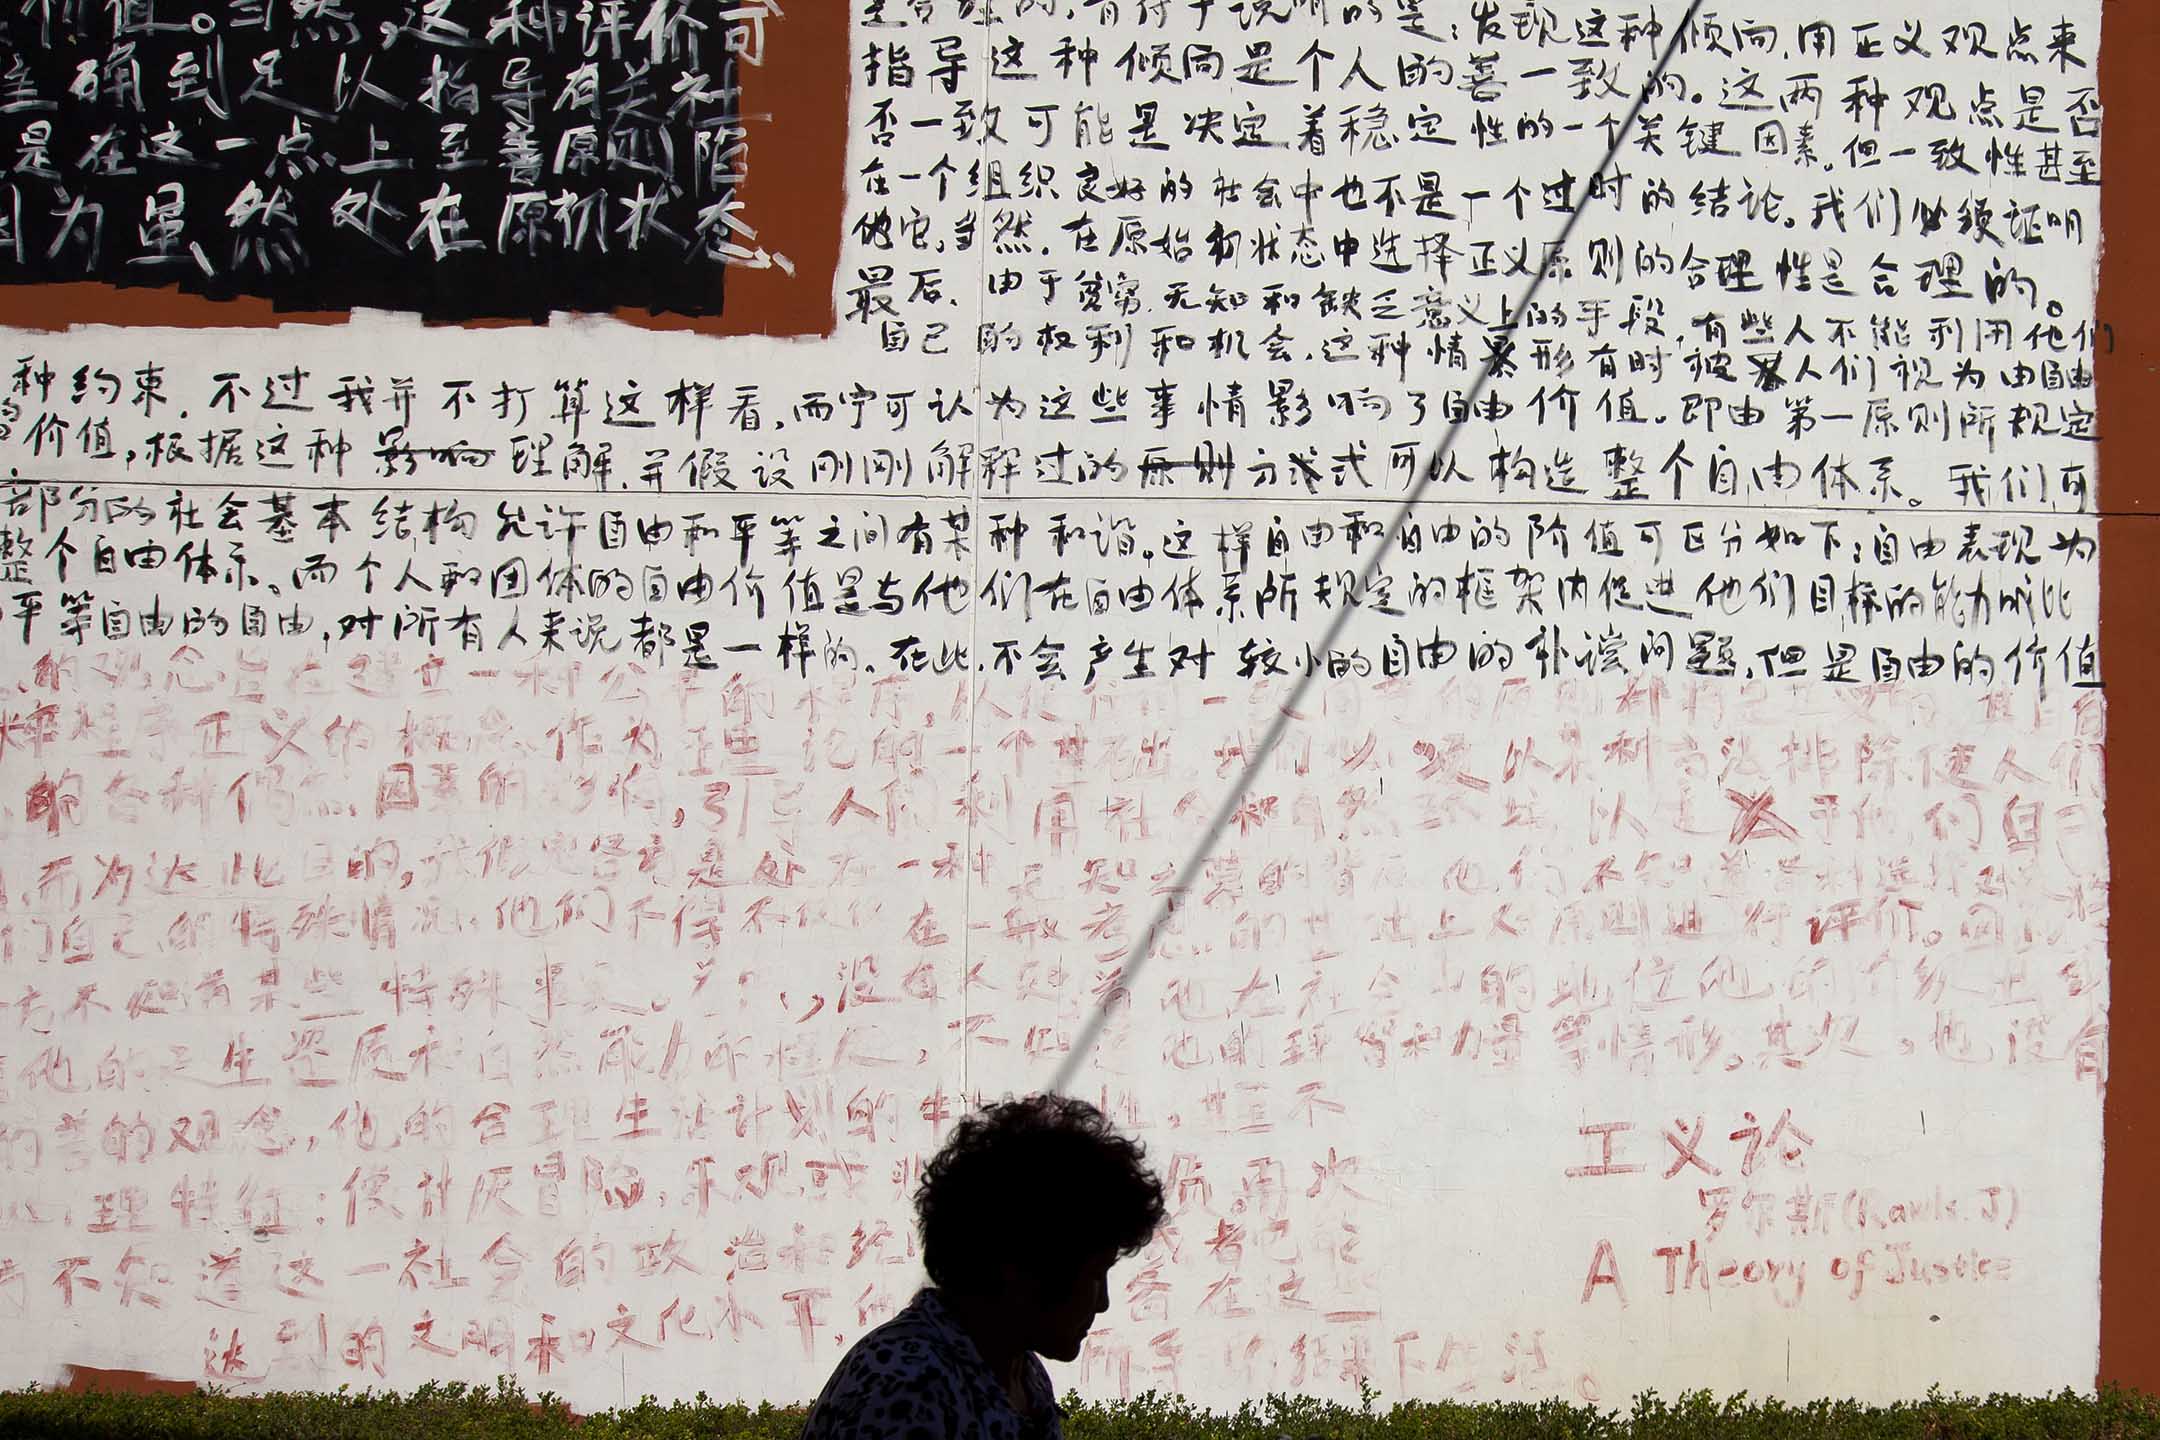 价值。当然，这种评价可
准确到足以指导有关社
是在这一点上至善原则陷
因为虽然处在原初状态、
是合理的，有待于说明的是：发现这种倾向，用正义观点来
指导这种倾向是个人的善一致的。这两种观点是否
否一致可能是决定着稳定性的一个关键因素。但一致性甚至
在一个组织良好的社会中也不是一个过时的结论。我们必须证明
他它。当然，在原始初状态中选择正义原则的合理性是合理的。
最后，由于贫穷、无知和缺乏意义上的手段，有些人不能利用他们
自己的权利和机会，这种情景形有时被人们视为由自由
种约束，不过我并不打算这样看，而宁可认为这些事情影响了自由价值。即由第一原则所规定
的价值，根据这种影响理解，并假设刚刚解释过的原则方式式可以构造整个自由体系。我们可
部分的社会基本结构允许自由和平等之间有某种和谐。这样自由和自由的阶值可区分如下：自由表现为
整个自由体系。而个人和团体的自由价值是与他们在自由体系所规定的框架内促进他们目标的能力成比
平等自由的自由，对所有人来说都是一样的。在此，不会产生对较小的自由的补偿问题，但是自由的价值
的观念旨在建立一种公平的程序，从使任何一致同意的原则都将是正义的
粹程序正义的概念作为理论的一个基础。我们必须以某种方法排除使人们
的各种偶然因素的影响，引导人们利用社会和自然环境以适于他们自己
而为达此目的，我假定各方是处在一种无知之幕的背后。他们不知道各种选择
们自己的特殊情况，他们不得不仅仅在一般考虑的基础上对原则进行评价。
不知道某些特殊事实。首先，没有人知道他在社会中的地位他的阶级出身
他的天生资质和自然能力的程度，不知道他的理智和力量等情形。其次，他没有
的善的观念，他的合理生活计划的特殊性，甚至不
理特征：像讨厌冒险、乐观或悲 质。再次
不知道这一社会的政治和经 或者它能
达到的文明和文化水平，他 各在这
所 下生活。
工义论
罗尔斯(Rawls J)
A Theory of Justice